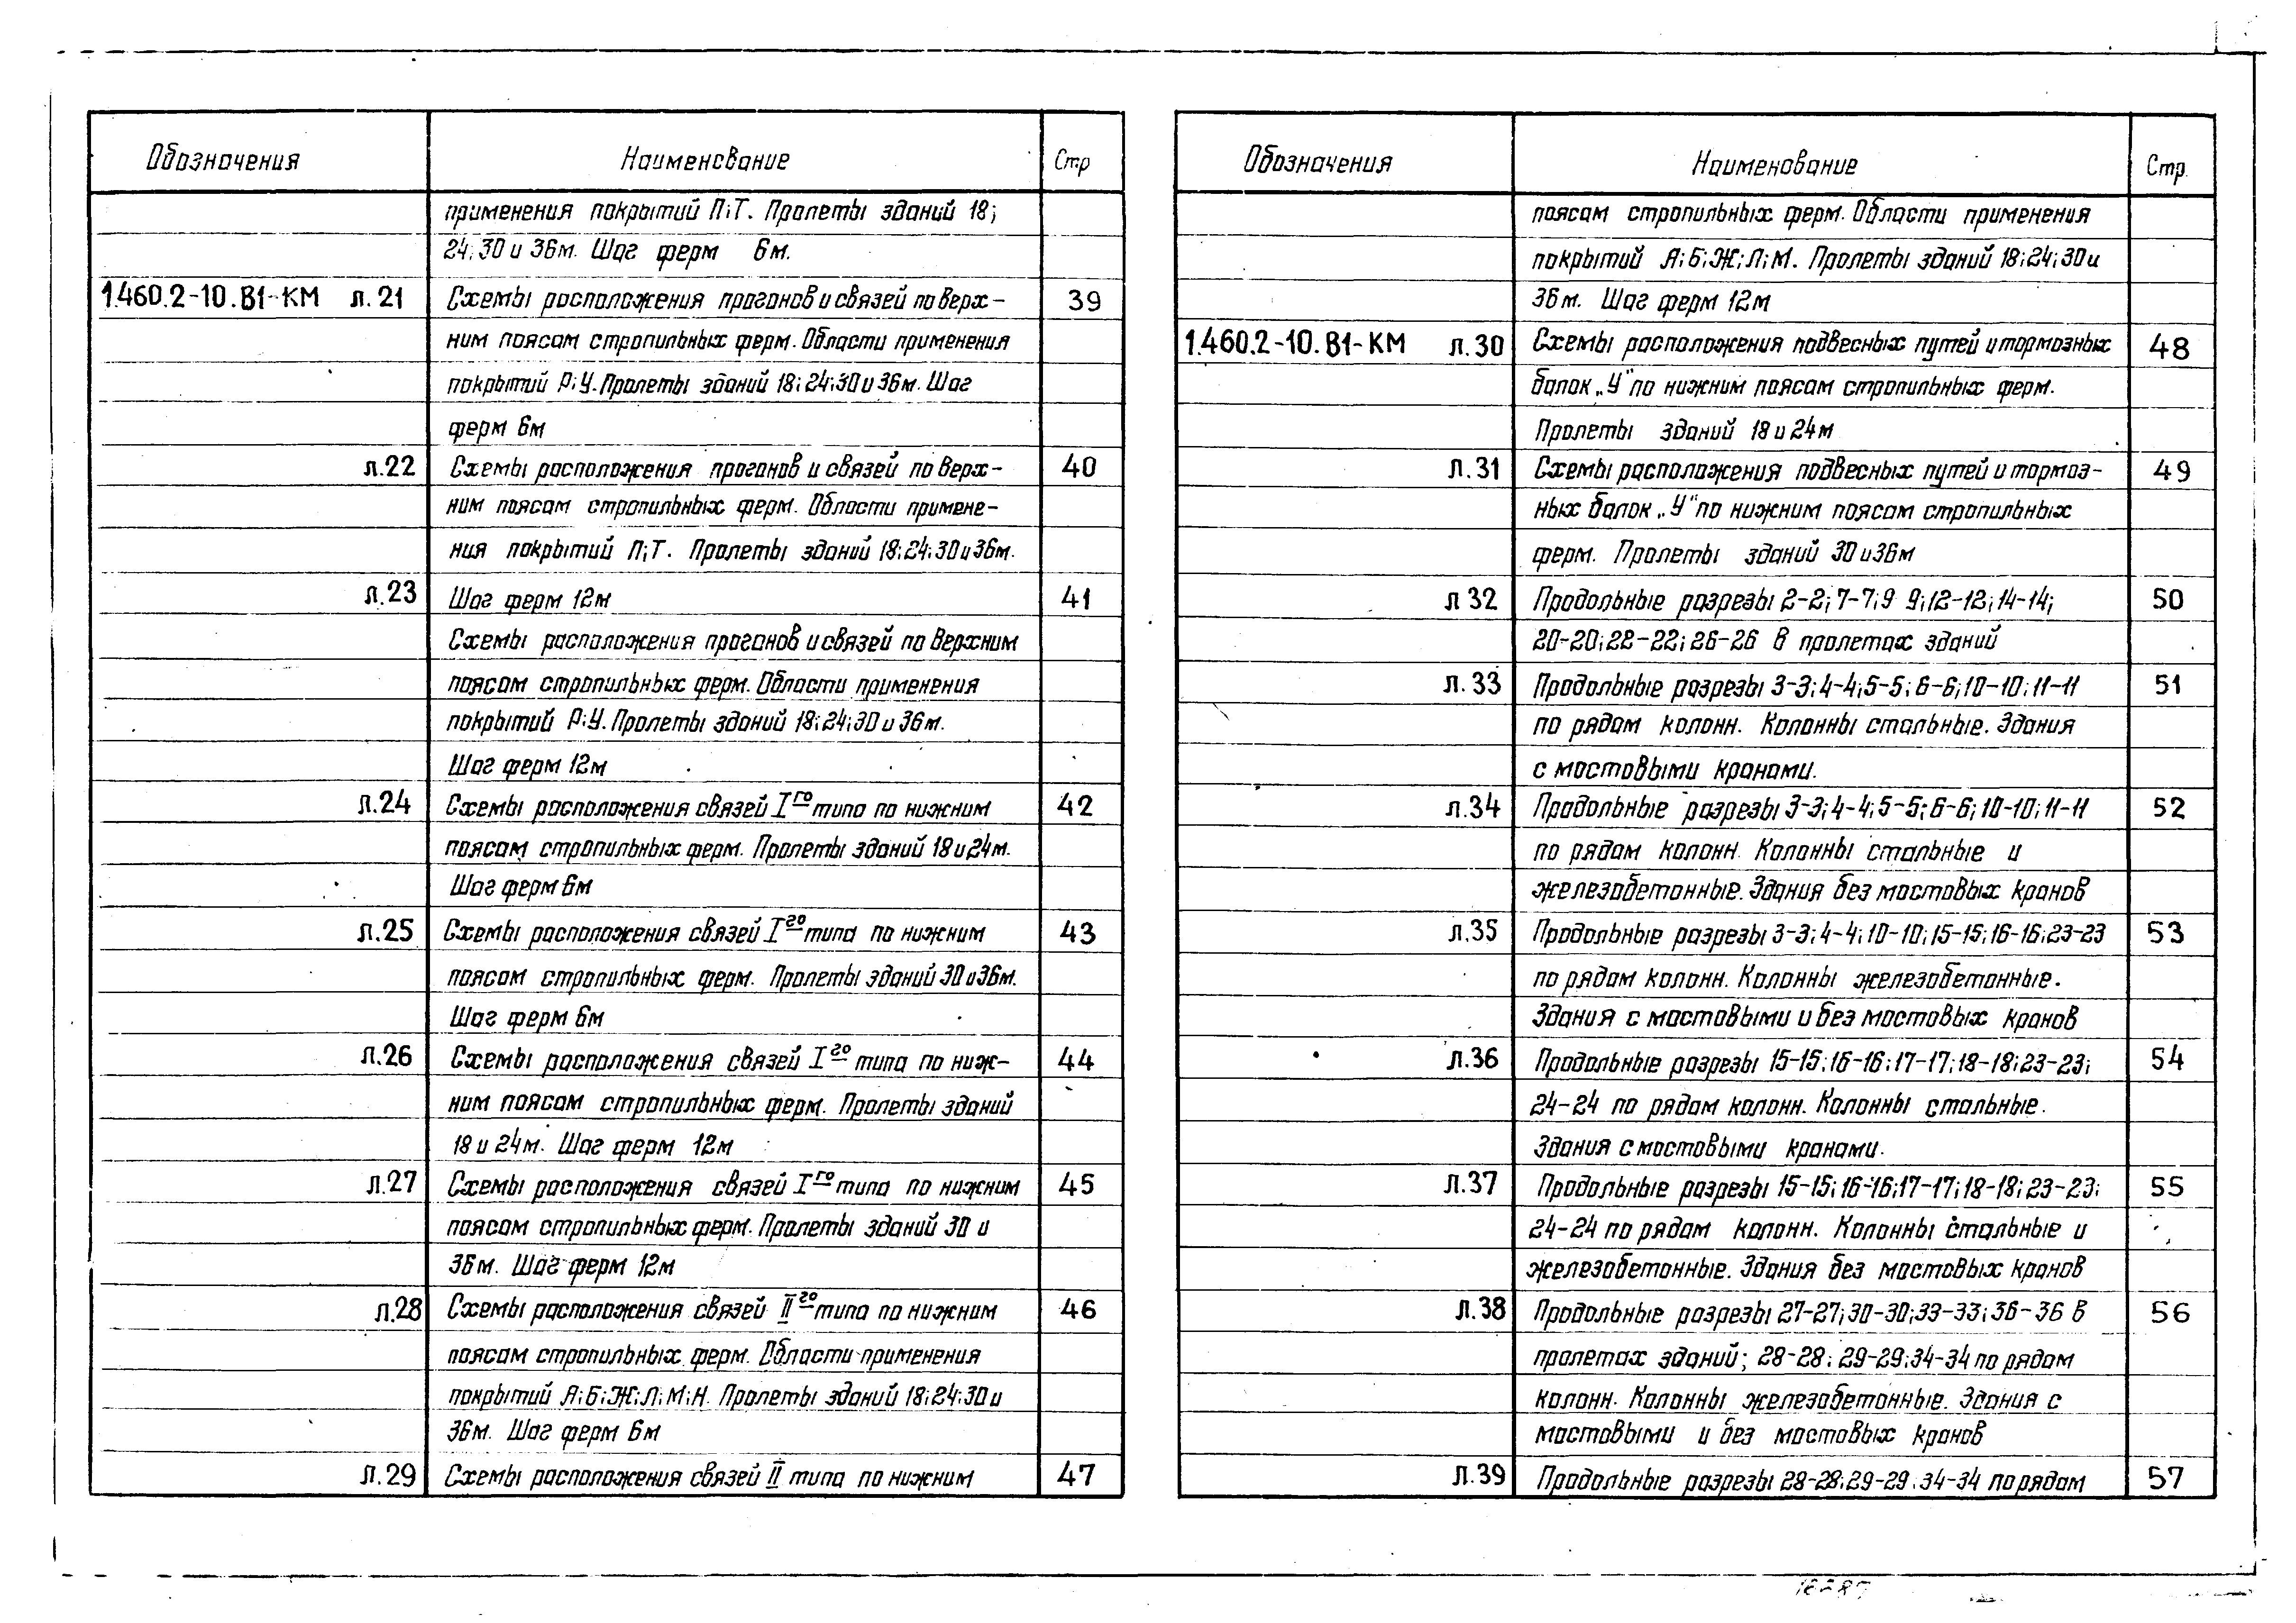 Обозначения Наименование Стр
применения покрытий П;Т. Пролеты зданий 18;
24;30 и 36м. Шаг ферм 6м.
1.460.2-10.В1-КМ л.21 Схемы расположения прогонов и связей по верх- 39
ним поясам стропильных ферм. Области применения
покрытий Р;У. Пролеты зданий 18;24;30 и 36м. Шаг
ферм 6м
л.22 Схемы расположения прогонов и связей по верх- 40
ним поясам стропильных ферм. Области примене-
ния покрытий П;Т. Пролеты зданий 18;24;30 и 36м.
л.23 Шаг ферм 12м 41
Схемы расположения прогонов и связей по верхним
поясам стропильных ферм. Области применения
покрытий Р;У. Пролеты зданий 18;24;30 и 36м.
Шаг ферм 12м
л.24 Схемы расположения связей I го типа по нижним 42
поясам стропильных ферм. Пролеты зданий 18 и 24м.
Шаг ферм 6м
л.25 Схемы расположения связей I го типа по нижним 43
поясам стропильных ферм. Пролеты зданий 30 и 36м.
Шаг ферм 6м
л.26 Схемы расположения связей I го типа по ниж- 44
ним поясам стропильных ферм. Пролеты зданий
18 и 24м. Шаг ферм 12м
л.27 Схемы расположения связей I го типа по нижним 45
поясам стропильных ферм. Пролеты зданий 30 и
36м. Шаг ферм 12м
л.28 Схемы расположения связей II го типа по нижним 46
поясам стропильных ферм. Области применения
покрытий А;Б;Ж;Л;М;Н. Пролеты зданий 18;24;30 и
36м. Шаг ферм 6м
л.29 Схемы расположения связей II типа по нижним 47
Обозначения Наименование Стр.
поясам стропильных ферм. Области применения
покрытий А;Б;Ж;Л;М. Пролеты зданий 18;24;30 и
36м. Шаг ферм 12м
1.460.2-10.В1-КМ л.30 Схемы расположения подвесных путей и тормозных 48
балок „У" по нижним поясам стропильных ферм.
Пролеты зданий 18 и 24м
л.31 Схемы расположения подвесных путей и тормоз- 49
ных балок „У" по нижним поясам стропильных
ферм. Пролеты зданий 30 и 36м
л 32 Продольные разрезы 2-2; 7-7; 9 9; 12-12; 14-14; 50
20-20; 28-22; 26-26 в пролетах зданий
л.33 Продольные разрезы 3-3; 4-4; 5-5; 6-6; 10-10; 11-11 51
по рядам колонн. Колонны стальные. Здания
с мостовыми кранами.
л.34 Продольные разрезы 3-3; 4-4; 5-5; 6-6; 10-10; 11-11 52
по рядам колонн. Колонны стальные и
железобетонные. Здания без мостовых кранов
л.35 Продольные разрезы 3-3; 4-4; 10-10; 15-15; 16-16; 23-23 53
по рядам колонн. Колонны железобетонные.
Здания с мостовыми и без мостовых кранов
л.36 Продольные разрезы 15-15; 16-16; 17-17; 18-18; 23-23; 54
24-24 по рядам колонн. Колонны стальные.
Здания с мостовыми кранами.
л.37 Продольные разрезы 15-15; 16-16; 17-17; 18-18; 23-23; 55
24-24 по рядам колонн. Колонны стальные и
железобетонные. Здания без мостовых кранов
л.38 Продольные разрезы 27-27; 30-30; 33-33; 36-36 в 56
пролетах зданий; 28-28; 29-29; 34-34 по рядам
колонн. Колонны железобетонные. Здания с
мостовыми и без мостовых кранов
л.39 Продольные разрезы 28-28; 29-29; 34-34 по рядам 57